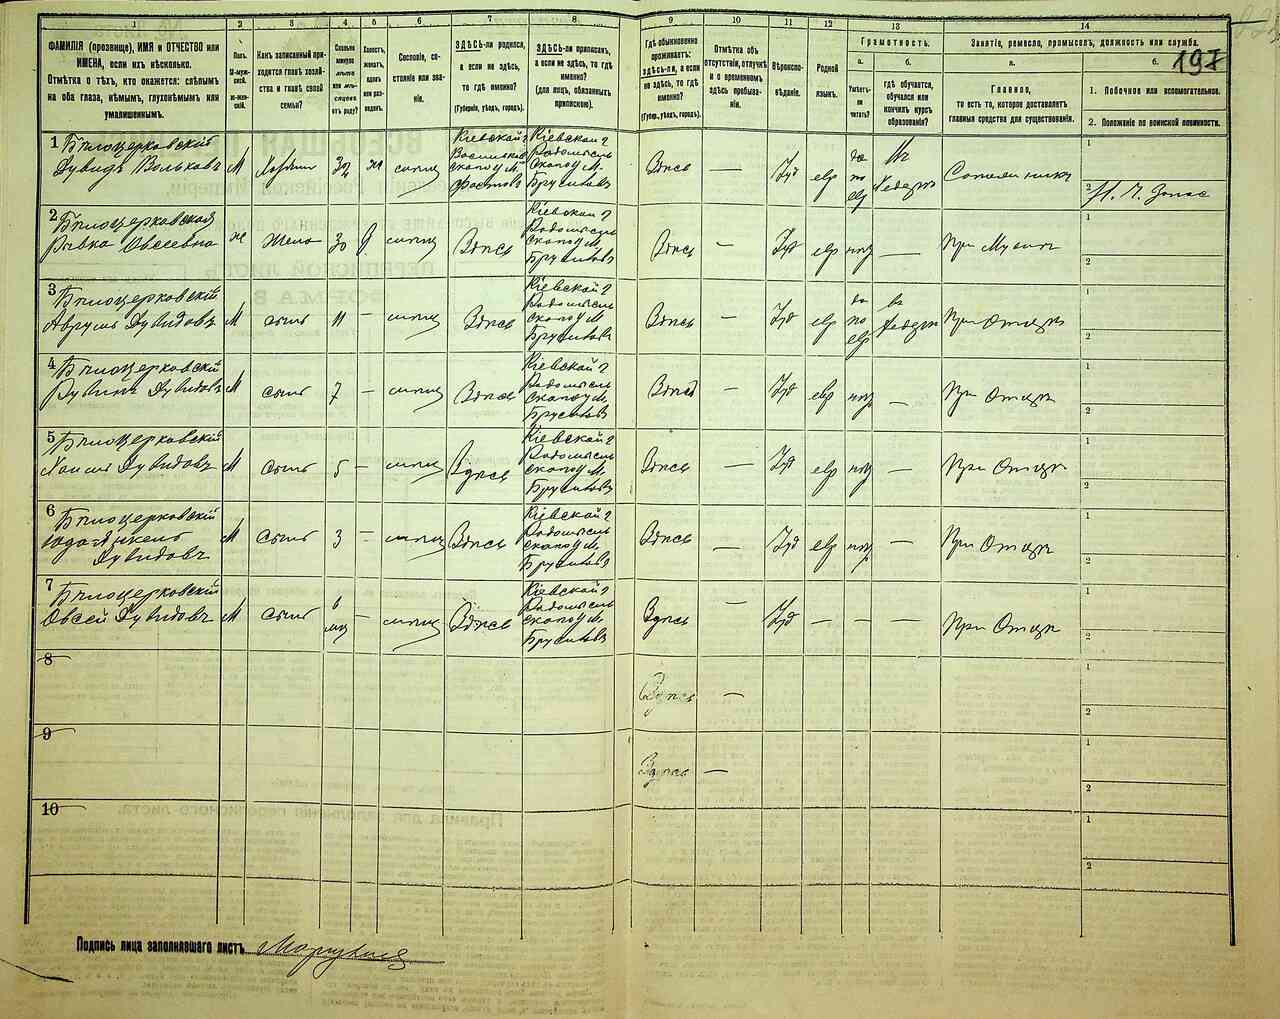 197
1
2
3
4
5
6
7
8
9
10
11
12
13
14
ФАМИЛІЯ (прозвище), ИМЯ и ОТЧЕСТВО или
ИМЕНА, если ихъ нѣсколько.
Отмѣтка о тѣхъ, кто окажется: слѣпымъ
на оба глаза, нѣмымъ, глухонѣмымъ или
умалишеннымъ.
Полъ.
М-мужской.
Ж-женскій.
Какъ записанный приходится главѣ хозяйства и главѣ своей семьи?
Сколько минуло лѣтъ или мѣсяцевъ отъ роду?
Холостъ, женатъ, вдовъ или разведенъ.
Сословіе, состояніе или званіе.
ЗДѢСЬ-ли родился, а если не здѣсь, то гдѣ именно?
(Губернія, уѣздъ, городъ).
ЗДѢСЬ-ли приписанъ, а если не здѣсь, то гдѣ именно?
(для лицъ, обязанныхъ припискою).
Гдѣ обыкновенно проживаетъ: здѣсь-ли, а если не здѣсь, то гдѣ именно?
(Губер., уѣздъ, городъ).
Отмѣтка объ отсутствіи, отлучкѣ и о временномъ здѣсь пребываніи.
Вѣроисповѣданіе.
Родной языкъ.
Грамотность.
а.
Умѣетъ-ли читать?
б.
гдѣ обучается, обучался или кончилъ курсъ образованія?
Занятіе, ремесло, промыселъ, должность или служба.
а.
Главное,
то есть то, которое доставляетъ
главныя средства для существованія.
б.
1. Побочное или вспомогательное.
2. Положеніе по воинской повинности.
1 Бѣлоцерковскій
Дувидъ Вольковъ
М
Хозяинъ
32
ж
Кіевской г
Васильков
скаго у М.
Фастовъ
Кіевской г
Радомысль
скаго у М.
Брусиловъ
Здѣсь
—
Іуд
евр
да
по
евр
Въ
Хедерѣ
1
2 Н. Ч. Запас
2 Бѣлоцерковская
Ривка Овсеевна
ж
Жена
30
Здѣсь
Кіевской г
Радомысль
скаго у М
Брусиловъ
Здѣсь
—
Іуд
евр
—
При Мужѣ
1
2
3 Бѣлоцерковскій
Аврумъ Дувидовъ
М
сынъ
11
—
Здѣсь
Кіевской г
Радомысль
скаго у М
Брусиловъ
Здѣсь
—
Іуд
евр
да
по
евр
въ
Хедерѣ
При Отцѣ
1
2
4 Бѣлоцерковскій
Рувинъ Дувидовъ
М
сынъ
7
—
Здѣсь
Кіевской г
Радомысль
скаго у М.
Брусиловъ
Здѣсь
—
Іуд
евр
—
При Отцѣ
1
2
5 Бѣлоцерковскій
Хаимъ Дувидовъ
М
сынъ
5
—
Здѣсь
Кіевской г
Радомысль
скаго у М
Брусиловъ
Здѣсь
—
Іуд
евр
—
При Отцѣ
1
2
6 Бѣлоцерковскій
Юдо-Янкель
Дувидовъ
М
сынъ
3
—
Здѣсь
Кіевской г
Радомысль
скаго у М
Брусиловъ
Здѣсь
—
Іуд
евр
—
При Отцѣ
1
2
7 Бѣлоцерковскій
Овсей Дувидовъ
М
сынъ
6
мѣц
—
Здѣсь
Кіевской г
Радомысль
скаго у М
Брусиловъ
Здѣсь
—
Іуд
—
—
—
При Отцѣ
1
2
8
Здѣсь
—
1
2
9
Здѣсь
—
1
2
10
1
2
Подпись лица заполнявшаго листъ